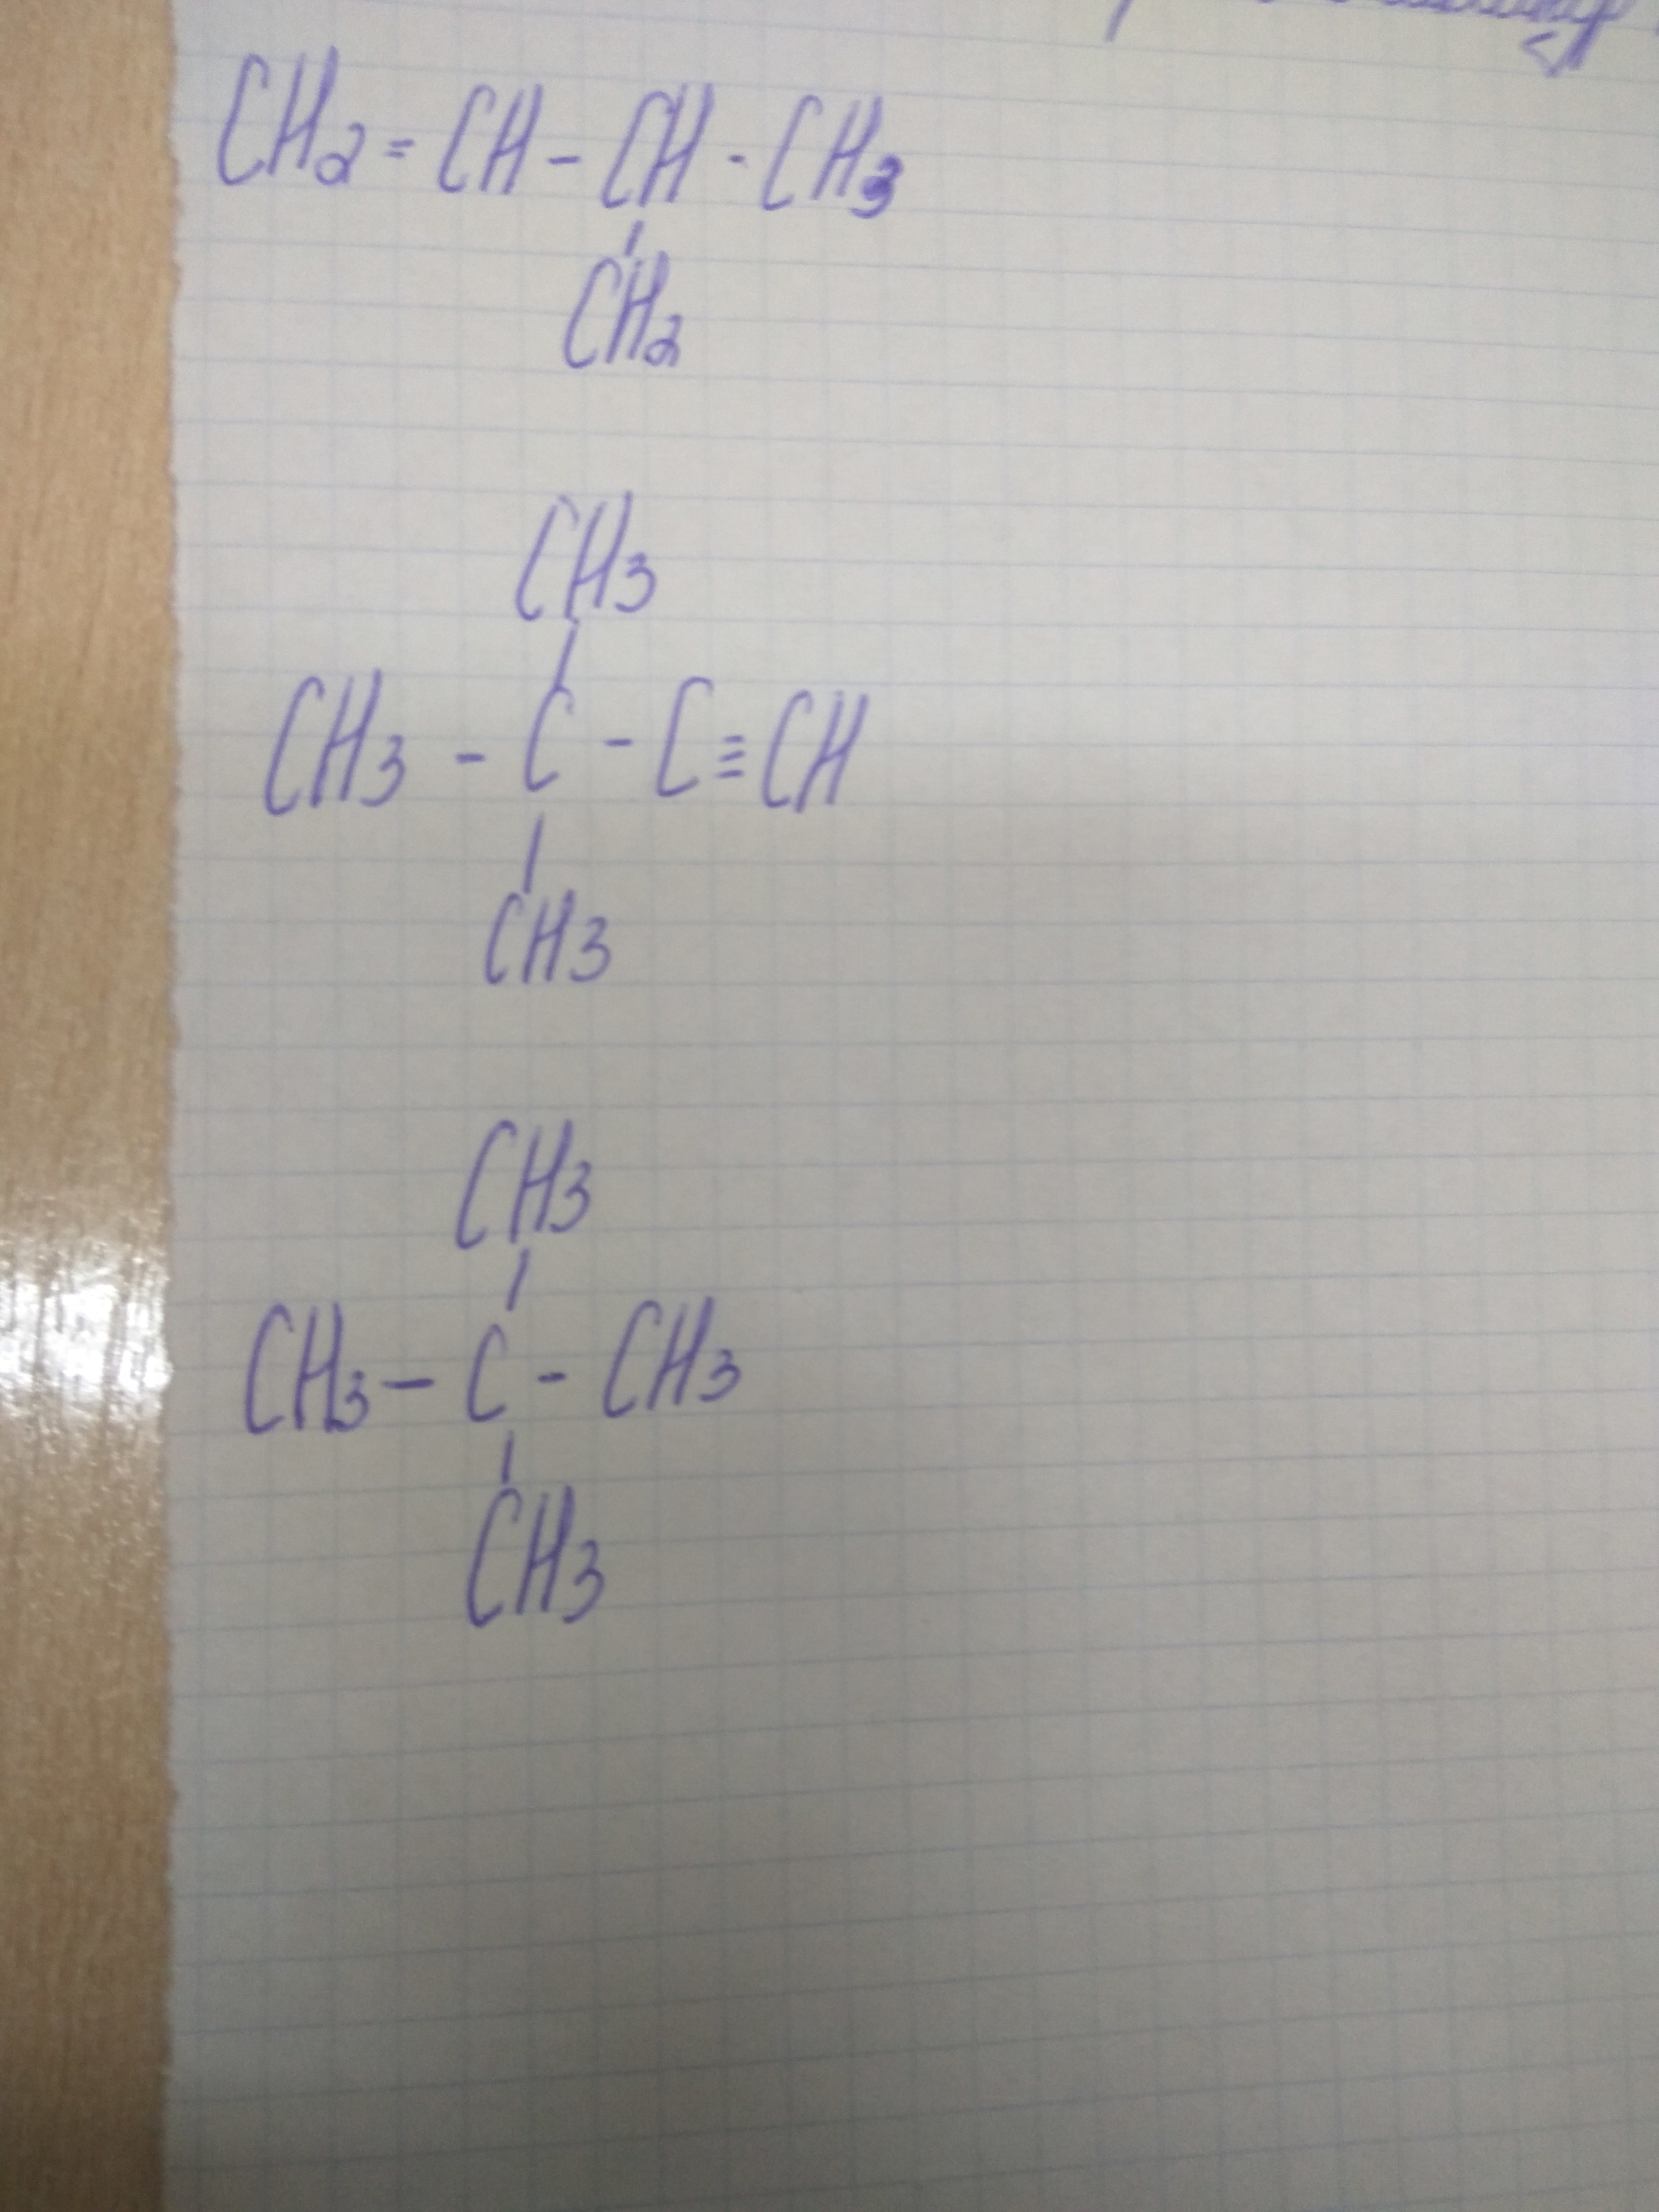 CH2=CH-CH-CH3
CH2
CH3
CH3-C-C≡CH
CH3
CH3
CH3-C-CH3
CH3